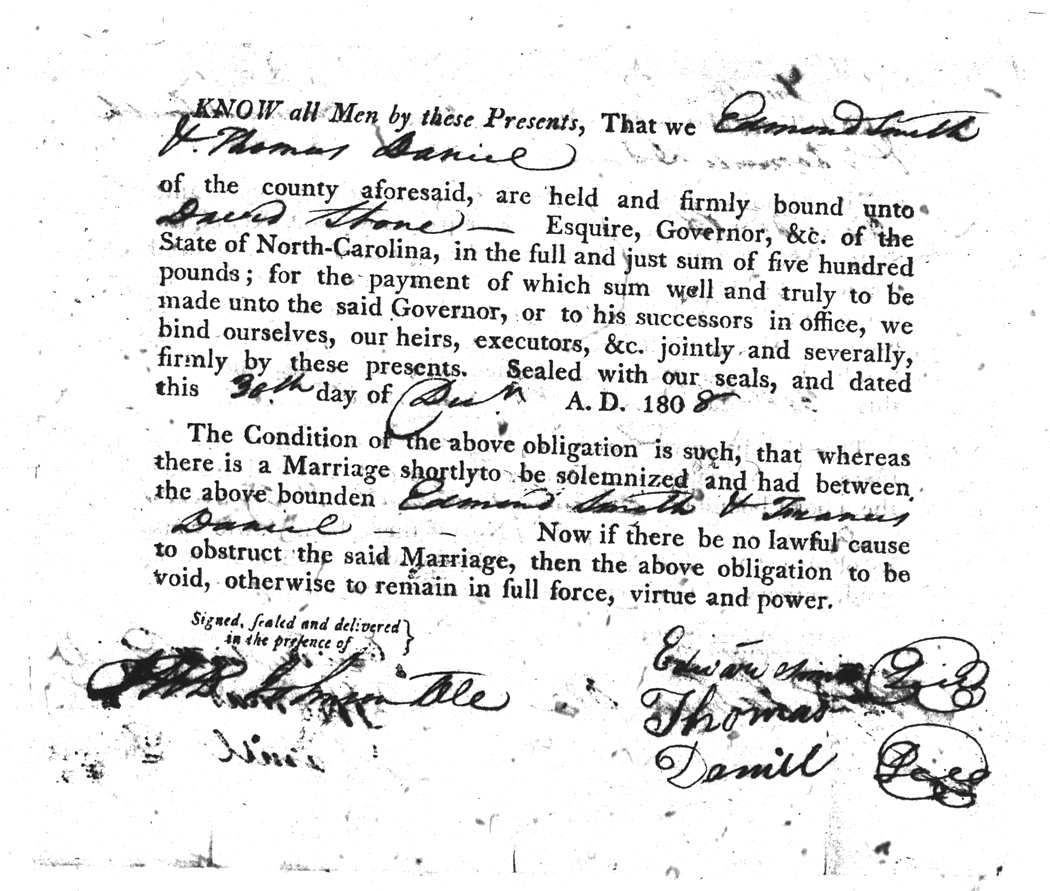 KNOW all Men by these Presents, That we Edmond Smith
& Thomas Daniel
of the county aforesaid, are held and firmly bound unto
David Stone — Esquire, Governor, &c. of the
State of North-Carolina, in the full and just sum of five hundred
pounds; for the payment of which sum well and truly to be
made unto the said Governor, or to his successors in office, we
bind ourselves, our heirs, executors, &c. jointly and severally,
firmly by these presents. Sealed with our seals, and dated
this 30th day of Decr A. D. 1808
The Condition of the above obligation is such, that whereas
there is a Marriage shortlyto be solemnized and had between
the above bounden Edmond Smith & Frances
Daniel — — Now if there be no lawful cause
to obstruct the said Marriage, then the above obligation to be
void, otherwise to remain in full force, virtue and power.
Signed, sealed and delivered
in the presence of
Johnson
Smith Seal
Thomas
Daniell Seal